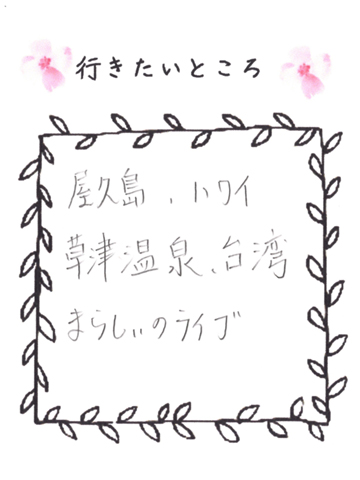 行きたいところ
屋久島、ハワイ
草津温泉、台湾
まらしぃのライブ